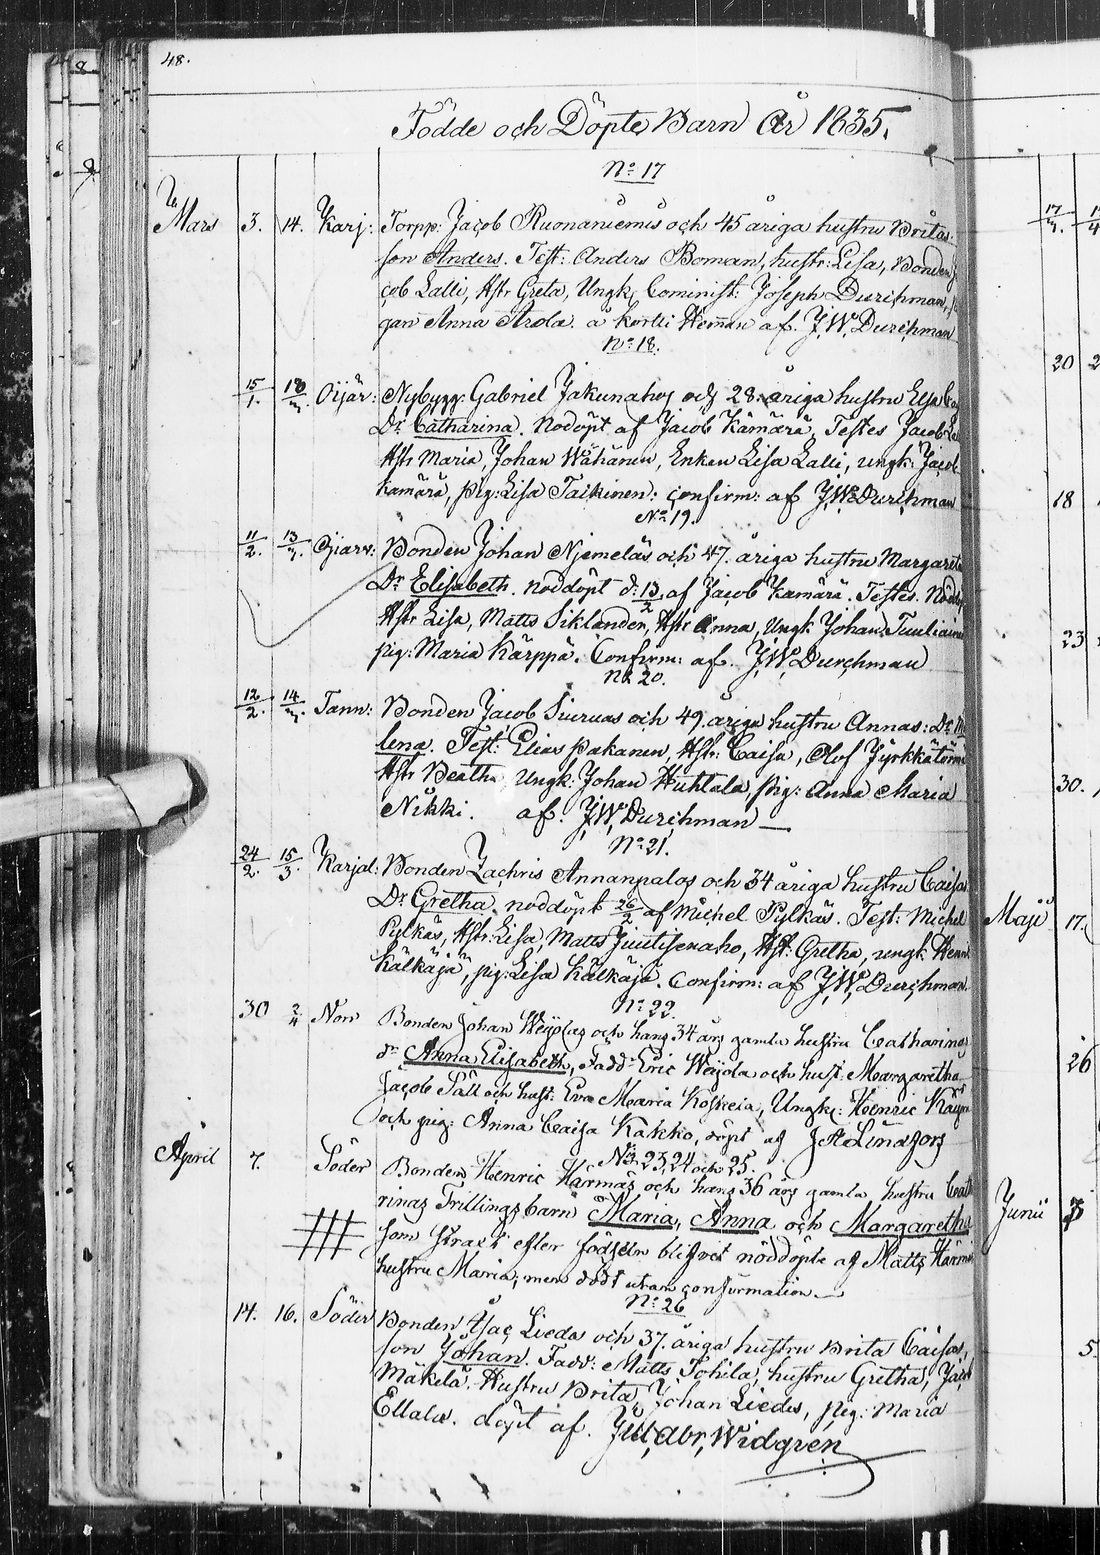 48.
Födde och Döpte Barn År 1835.
No 17
Mars 3. 14. Karj: Torpp: Jacob Ruonaniemis och 45 åriga hustru Britas
son Anders. Test: Anders Boman, hustr: Lisa, Bonden
cob Lalli, Hstr Greta, Ungk: Cominist: Joseph Durchman,
gan Anna Arola. a Kortti Heman af. J.W. Durchman
No 18.
15/1. 18/3. Oijär: Nybygg: Gabriel Jakunahos och 28: åriga hustru Elsa
Dr Catharina. Nödöpt af Jacob Kämärä, Testes Jacob
Hstr Maria, Johan Wähänen, Enkan Lisa Lalli, ungk: Jacob
Kämärä, pig: Lisa Taikinen: confirm: af J.W. Durchman
No 19.
11/2. 13/3. Oijarv: Bonden Johan Njemeläs och 47. åriga hustru Margareta
Dr Elisabeth. nöddöpt d: 13/2 af Jacob Kämärä. Testes.
Hstr Lisa, Matts Siklander, Hstr Anna, Ungk Johan Tuuliainen
pig: Maria Kärppä. Confirm: af. J.W. Durchman
No 20.
12/2. 14/3. Tann: Bonden Jacob Siuruas och 49. åriga hustru Annas: Dr
lena. Test: Elias Pakanen, Hstr: Caisa, Olof Jyrkkä
Hstr Beatha, Ungk: Johan Huhtala, pig: Anna Maria
Nikki. af. J.W. Durchman
No 21.
24/2. 15/3. Karjal: Bonden Zachris Annanpalos och 34 åriga hustru Caisas
Dr Gretha. nöddöpt 26/2 af Michel Pylkäs. Test: Michel
Pylkäs, Hstr: Lisa, Matts Juutisenaho, Hst: Gretha, ungk: Henr.
Kälkäjä, pig: Lisa Kälkäjä. Confirm: af J.W. Durchman.
No 22.
30 2/4 Norr Bonden Johan Weijolas och hans 34 års gamla hustru Catharinas
dr Anna Elisabeth, Fadd: Eric Weijola och hust: Margaretha
Jacob Päll och hust: Eva Maria Koskela, Ungk: Henric
och pig: Anna Caisa Kakko, döpt af J A Lindfors
No 23, 24 och 25.
April 7. Söder Bonden Henric Härmäs och hans 36 års gamla hustru
rinas Trillingsbarn Maria, Anna och Margaretha
som strast efter födseln blifvet nöddöpte af Matts Härmä
hustru Maria, men dödt utan confirmation.
No 26
14. 16. Söder Bonden Isac Liedes och 37. åriga hustru Brita Caisas,
son Johan. Fadd: Matts Tohila, hustru Gretha, Jacob
Mäkelä. Hustru Brita, Johan Liedes, pig: Maria
Ellala. döpt af. Joh. Abr. Widgren
17/3.
20
18
23
30.
Maji 17.
26
Junii 3
5.